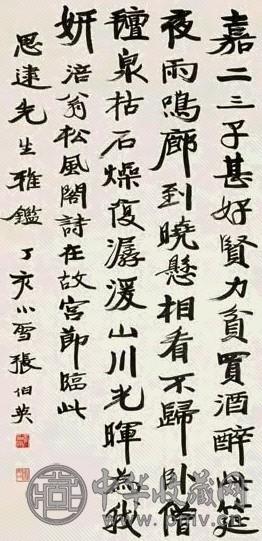 嘉二三子甚好賢力貧買酒醉此筵
夜雨鳴廊到曉懸相看不歸臥僧
氈泉枯石燥復潺湲山川光暉為我
妍 涪翁松風閣詩在故宮節臨此
思建先生雅鑑 丁亥小雪張伯英
中华收藏网